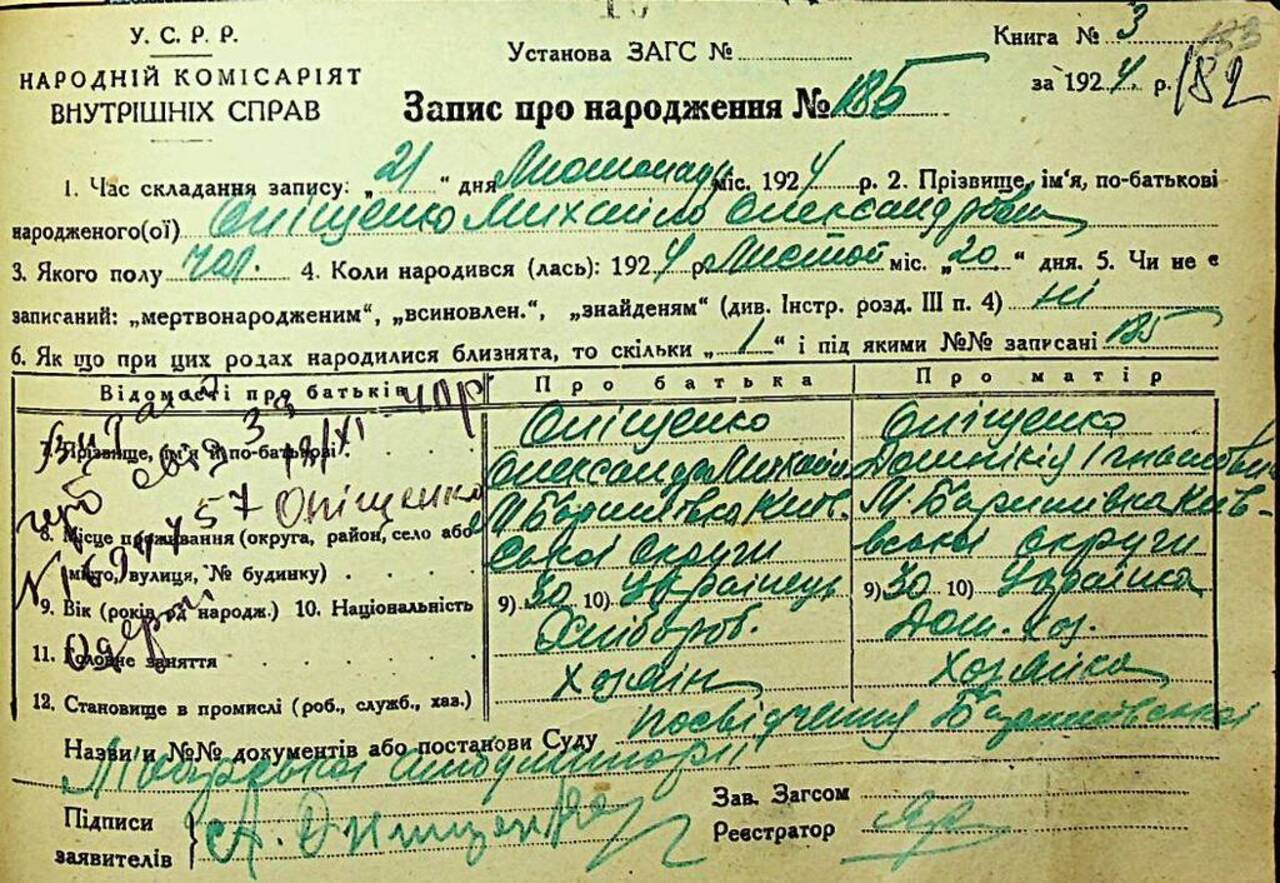 У. С. Р. Р.
НАРОДНІЙ КОМІСАРІЯТ
ВНУТРІШНІХ СПРАВ
Установа ЗАГС №
Книга № 3
за 1924 р. 182
Запис про народження № 185
1. Час складання запису: „21“ дня Листопаду міс. 1924 р. 2. Прізвище, ім'я, по-батькові
народженого(ої) Оніщенко Михайло Олександрович
3. Якого полу чол. 4. Коли народився (лась): 1924 р. Листоп міс. „20“ дня. 5. Чи не є
записаний: „мертвонародженим“, „всиновлен.“, „знайденям“ (див. Інстр. розд. III п. 4) ні
6. Як що при цих родах народилися близнята, то скільки „1“ і під якими №№ записані 185
Відомості про батьків Про батька Про матір
7. Прізвище, ім'я й по-батькові Оніщенко Оніщенко
Олександр Михайл Домнікія Ігнатовна
57 Оніщенко
8. Місце проживання (округа, район, село або М. Баришівка Київ. М. Баришівка Київ-
місто, вулиця, № будинку) ської округи вської округи
9. Вік (років од народж.) 10. Національність 9) 30 10) Українець 9) 30 10) Українка
11. Головне заняття Хлібороб. Дом. хоз.
12. Становище в промислі (роб., служб., хаз.) Хозяін Хозяйка
Назви и №№ документів або постанови Суду посвідчення Баришівської
Лікарської амбулаторії
Підписи
заявителів А. Онищенко
Зав. Загсом
Реєстратор